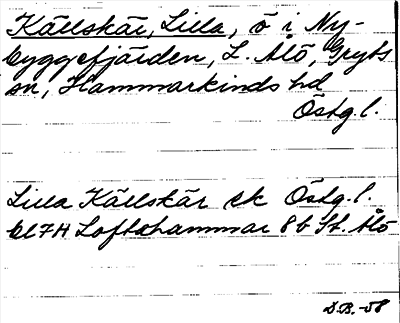 Källskär, Lilla, ö i Ny-
byggefjärden, L. Alö, Gryts
sn, Hammarkinds hd
Östg.l.
Lilla Källskär ek Östg.l.
bl 7H Loftahammar 8b St. Ålö
D.B.-58